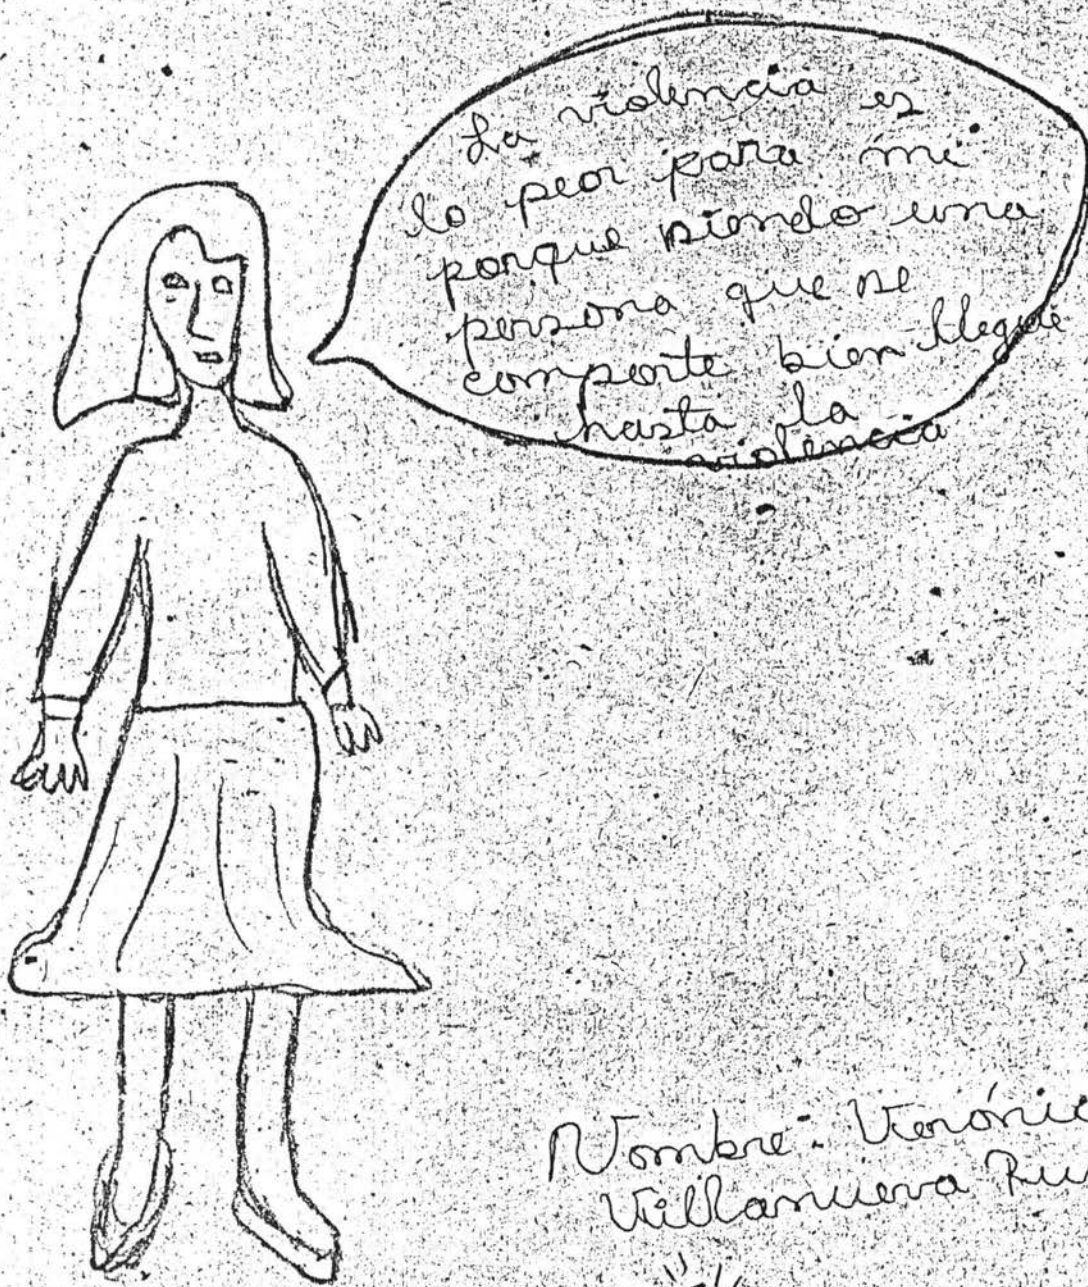 La violencia es
lo peor para mi
porque siendo una
persona que se
comporte bien llegue
hasta la
violencia
Nombre: Verónic
Villanueva